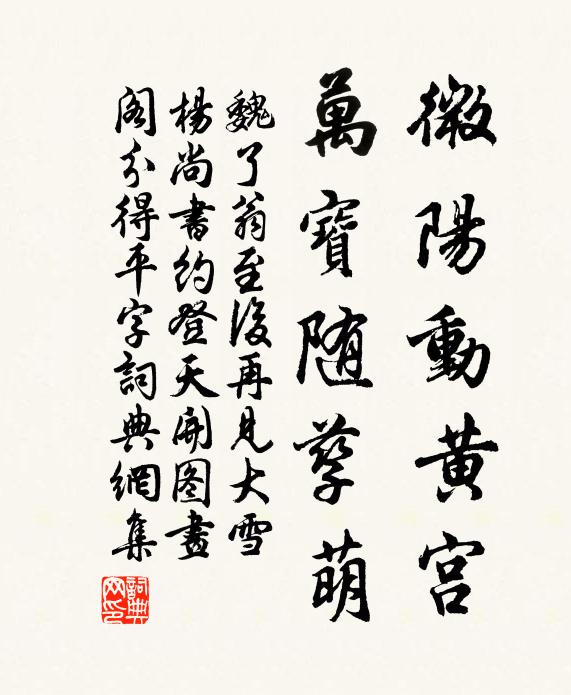 微陽動黄宫
萬寶随孳萌
魏了翁至後再見大雪
楊尚書約登天開图畫
阁分得平字詞典網集
詞典网印